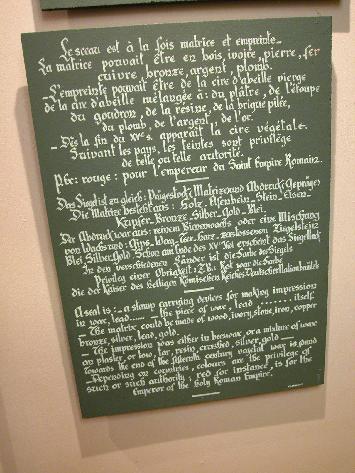 Le sceau est à la fois matrice et empreinte_
La matrice pouvait être en bois, ivoire, pierre, fer
cuivre, bronze, argent, plomb.
_L'empreinte pouvait être de la cire d'abeille vierge
de la cire d'abeille mélangée à: du plâtre, de l'étoupe
du goudron, de la résine, de la brique pilée,
du plomb, de l'argent, de l'or.
_Dès la fin du XVe s. apparaît la cire végétale.
Suivant les pays, les teintes sont privilège
de telle ou telle autorité.
rouge: pour l'empereur du Saint Empire Romain.
Das Siegel ist zu gleich: Prägestock (Matrize) und Abdruck (Gepräge)
Die Matrize besteht aus: Holz_Elfenbein_Stein_Eisen_
Kupfer_Bronze_Silber_Gold_Blei.
Der Abdruck war aus: reinem Bienenwachs oder eine Mischung
von Wachs und: Gips_Werg_Teer_Harz_ Ziegelstein
Blei_Silber_Gold Schon am Ende des XVten erscheint das Siegellack
In den verschiedenen Länder ist die Farbe der Siegels
Privileg einer Obrigkeit: Z.B.: Rot war die Farbe
die der Kaiser des heiligen Römischen Reiches Deutscher
A seal is:_a stamp carrying devices for making impression
in wax, lead...... _the piece of wax, lead ........ itself
_The matrix could be made of wood, ivory, stone, iron, copper
bronze, silver, lead, gold.
_The impression was either in beeswax or a mixture of wax
an plaster, or tow, tar, resin, crushed, silver, gold__
Towards the end of the fifteenth century vegetal wax is found
_Depending on countries, colours are the privilege of
such or such authority: red for instance, is for the
Emperor of the Holy Roman Empire.